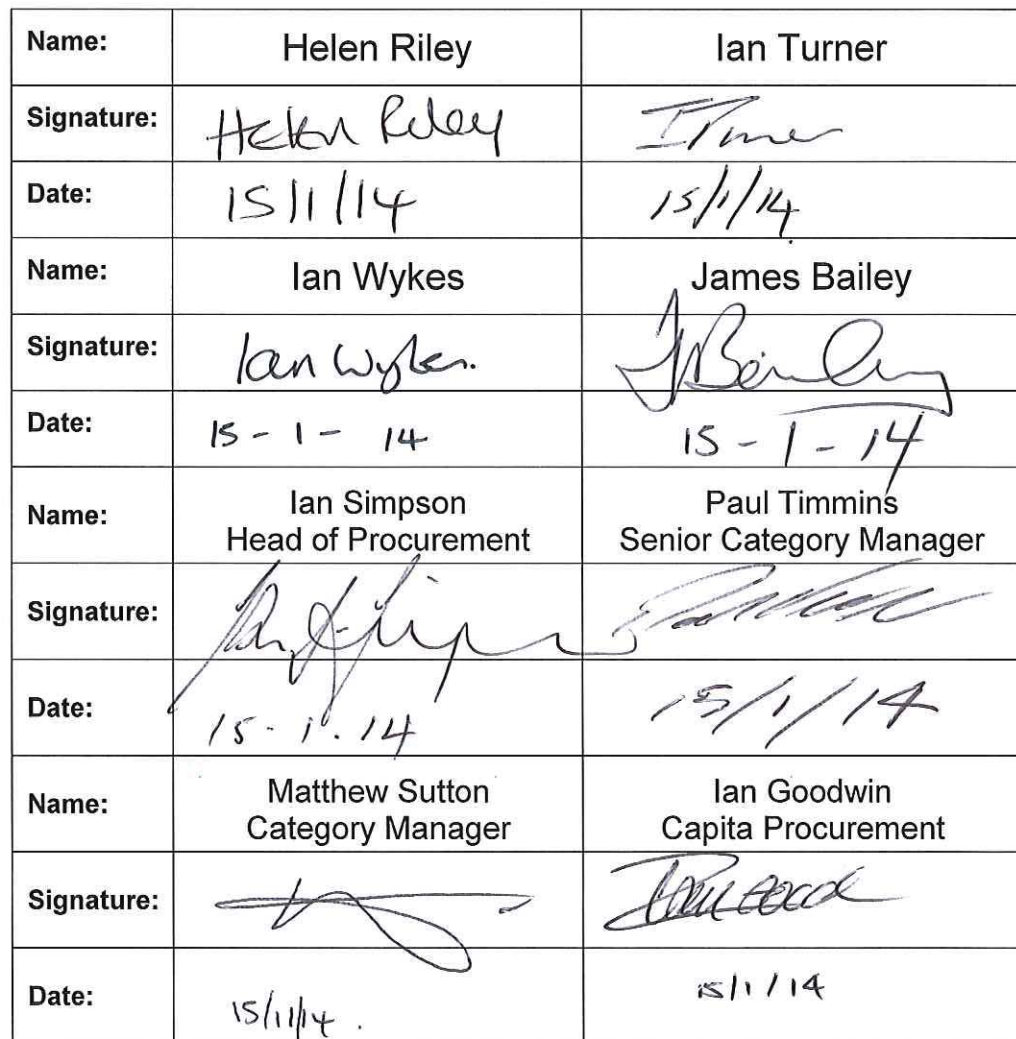 Name: Helen Riley Ian Turner
Signature: Helen Riley ITurner
Date: 15/1/14 15/1/14
Name: Ian Wykes James Bailey
Signature: Ian Wykes. JBailey
Date: 15-1-14 15-1-14
Name: Ian Simpson Paul Timmins
Head of Procurement Senior Category Manager
Signature:
Date: 15-1-14 15/1/14
Name: Matthew Sutton Ian Goodwin
Category Manager Capita Procurement
Signature:
Date: 15/1/14. 15/1/14